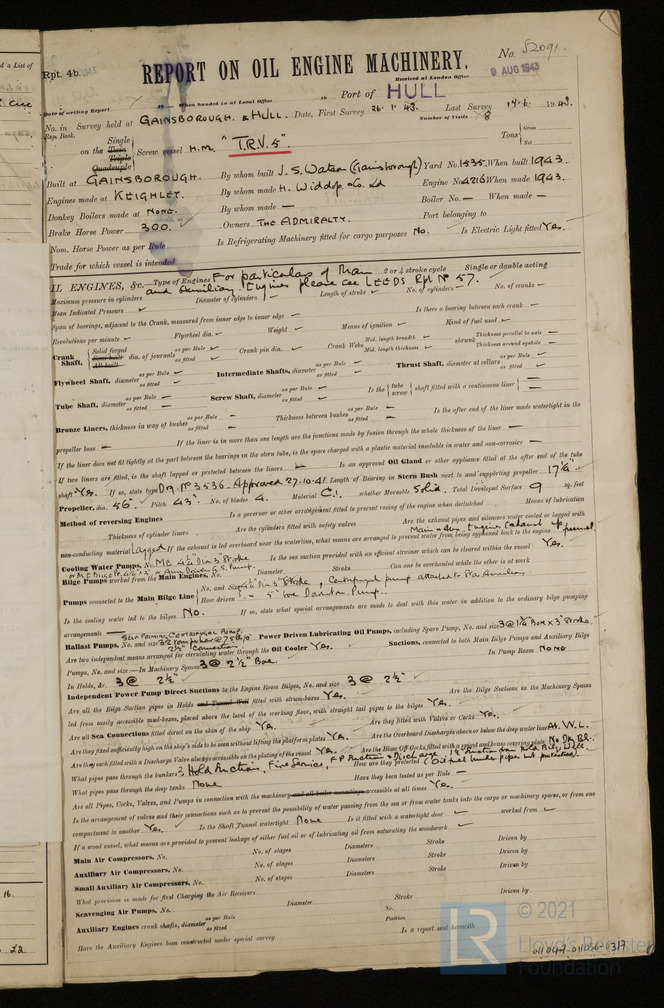 Rpt. 4b.
REPORT ON OIL ENGINE MACHINERY.
No. 52091.
Received at London Office
9 AUG 1943
Date of writing Report
When handed in at Local Office
Port of HULL
No. in Survey held at GAINSBOROUGH & HULL. Date, First Survey 26.1.43. Last Survey 19
Reg. Book.
Number of Visits 8
on the Single Twin Triple Quadruple Screw vessel H.M. "T.R.V. 5"
Tons Gross Net
Built at GAINSBOROUGH. By whom built J. S. Watson (Gainsborough) Yard No. 1535 When built 1943.
Engines made at KEIGHLEY. By whom made H. Widdop & Co. Ld Engine No. 4216 When made 1943.
Donkey Boilers made at NONE. By whom made — Boiler No. — When made —
Brake Horse Power 300. Owners THE ADMIRALTY. Port belonging to
Nom. Horse Power as per Rule Is Refrigerating Machinery fitted for cargo purposes No. Is Electric Light fitted Yes.
Trade for which vessel is intended
OIL ENGINES, &c. Type of Engines For particulars of Main 2 or 4 stroke cycle Single or double acting
and Auxiliary Engines please see LEEDS Rpt No 57.
Maximum pressure in cylinders Diameter of cylinders Length of stroke No. of cylinders No. of cranks
Mean Indicated Pressure
Span of bearings, adjacent to the Crank, measured from inner edge to inner edge Is there a bearing between each crank
Revolutions per minute Flywheel dia. Weight Means of ignition Kind of fuel used
Crank Shaft, Solid forged Semi built All built dia. of journals as per Rule as fitted Crank pin dia. Crank Webs Mid. length breadth Mid. length thickness shrunk Thickness parallel to axis Thickness around eyehole
Flywheel Shaft, diameter as per Rule as fitted Intermediate Shafts, diameter as per Rule as fitted Thrust Shaft, diameter at collars as per Rule as fitted
Tube Shaft, diameter as per Rule as fitted Screw Shaft, diameter as per Rule as fitted Is the tube screw shaft fitted with a continuous liner
Bronze Liners, thickness in way of bushes as per Rule as fitted Thickness between bushes as per Rule as fitted Is the after end of the liner made watertight in the
propeller boss — If the liner is in more than one length are the junctions made by fusion through the whole thickness of the liner —
If the liner does not fit tightly at the part between the bearings in the stern tube, is the space charged with a plastic material insoluble in water and non-corrosive —
If two liners are fitted, is the shaft lapped or protected between the liners — Is an approved Oil Gland or other appliance fitted at the after end of the tube
shaft Yes. If so, state type Drg. No 3536 Approved 27.10.41 Length of Bearing in Stern Bush next to and supporting propeller 17¼"
Propeller, dia. 56" Pitch 43" No. of blades 4. Material C.I. whether Moveable Solid. Total Developed Surface 9 sq. feet
Method of reversing Engines Is a governor or other arrangement fitted to prevent racing of the engine when declutched Means of lubrication
Thickness of cylinder liners Are the cylinders fitted with safety valves Are the exhaust pipes and silencers water cooled or lagged with
non-conducting material Lagged If the exhaust is led overboard near the waterline, what means are arranged to prevent water from being siphoned back to the engine Main & Aux. Engines Exhaust up funnel
Cooling Water Pumps, No. Is the sea suction provided with an efficient strainer which can be cleared within the vessel Yes.
Bilge Pumps worked from the Main Engines, No. Diameter Stroke Can one be overhauled while the other is at work
Pumps connected to the Main Bilge Line No. and Size How driven
Is the cooling water led to the bilges No. If so, state what special arrangements are made to deal with this water in addition to the ordinary bilge pumping
arrangements
Ballast Pumps, No. and size Power Driven Lubricating Oil Pumps, including Spare Pump, No. and size
Are two independent means arranged for circulating water through the Oil Cooler Yes. Suctions, connected to both Main Bilge Pumps and Auxiliary Bilge
Pumps, No. and size:—In Machinery Spaces 3 @ 2½" Bore. In Pump Room NONE
In Holds, &c. 3 @ 2½"
Independent Power Pump Direct Suctions to the Engine Room Bilges, No. and size 3 @ 2½"
Are all the Bilge Suction pipes in Holds and Tunnel Well fitted with strum-boxes Yes. Are the Bilge Suctions in the Machinery Spaces
led from easily accessible mud-boxes, placed above the level of the working floor, with straight tail pipes to the bilges Yes.
Are all Sea Connections fitted direct on the skin of the ship Yes. Are they fitted with Valves or Cocks Yes.
Are they fixed sufficiently high on the ship's side to be seen without lifting the platform plates Yes. Are the Overboard Discharges above or below the deep water line At W.L.
Are they each fitted with a Discharge Valve always accessible on the plating of the vessel Yes. Are the Blow Off Cocks fitted with a spigot and brass covering plate
What pipes pass through the bunkers 3 Hold Suction, Fire Service, F P Suction & Discharge How are they protected
What pipes pass through the deep tanks None Have they been tested as per Rule —
Are all Pipes, Cocks, Valves, and Pumps in connection with the machinery and all boiler mountings accessible at all times Yes.
Is the arrangement of valves and their connections such as to prevent the possibility of water passing from the sea or from water tanks into the cargo or machinery spaces, or from one
compartment to another Yes. Is the Shaft Tunnel watertight None Is it fitted with a watertight door worked from
If a wood vessel, what means are provided to prevent leakage of either fuel oil or of lubricating oil from saturating the woodwork
Main Air Compressors, No. No. of stages Diameters Stroke Driven by
Auxiliary Air Compressors, No. No. of stages Diameters Stroke Driven by
Small Auxiliary Air Compressors, No. No. of stages Diameters Stroke Driven by
What provision is made for first Charging the Air Receivers
Scavenging Air Pumps, No. Diameter Stroke Driven by
Auxiliary Engines crank shafts, diameter as per Rule as fitted No. Position
Have the Auxiliary Engines been constructed under special survey Is a report sent herewith
© 2021
LR
Lloyd's Register
Foundation